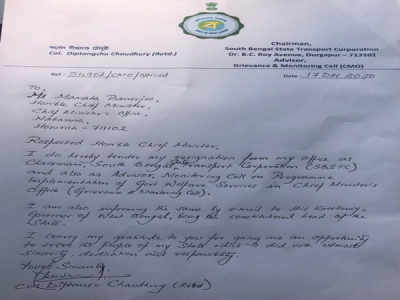 কর্নেল দীপ্তাংশু চৌধুরী
Col. Diptangshu Chaudhury (Retd.)
Chairman,
South Bengal State Transport Corporation
Dr. B.C. Roy Avenue, Durgapur - 713201
Advisor,
Grievance & Monitoring Cell (CMO)
Ref : 54902/CMO/Official
Date : 17 Dec 2020
To,
Ms Mamata Banerjee,
Hon'ble Chief Minister,
Chief Minister's Office,
Nabanna,
Howrah - 711102
Respected Hon'ble Chief Minister,
I do hereby tender my resignation from my office as
Chairman, South Bengal Transport Corporation (SBSTC)
and also as Advisor, Monitoring Cell on Programme
Implementation of Govt Welfare Services in Chief Minister's
Office (Grievance & Monitoring Cell).
I am also informing the same by e-mail to His Excellency,
Governor of West Bengal, being the constitutional head of the
State.
I convey my gratitude to you for giving me an opportunity
to serve the people of my State which I did with utmost
sincerity, dedication and responsibility.
Yours Sincerely,
Col Diptangsu Chaudhury (Retd)